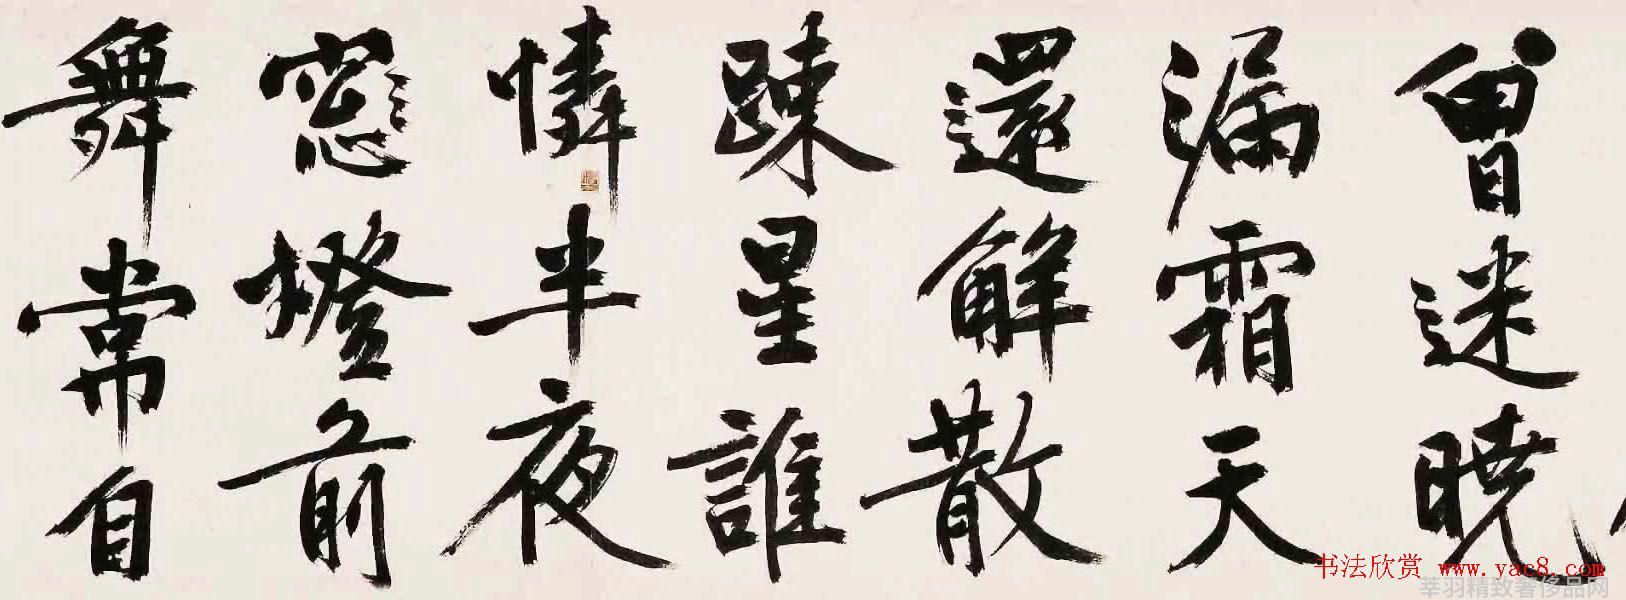 曾迷晓
漏霜天
還解散
踈星誰
憐半夜
窻燈前
舞常自
书法欣赏 www.yac8.com
幸羽精致奢侈品网